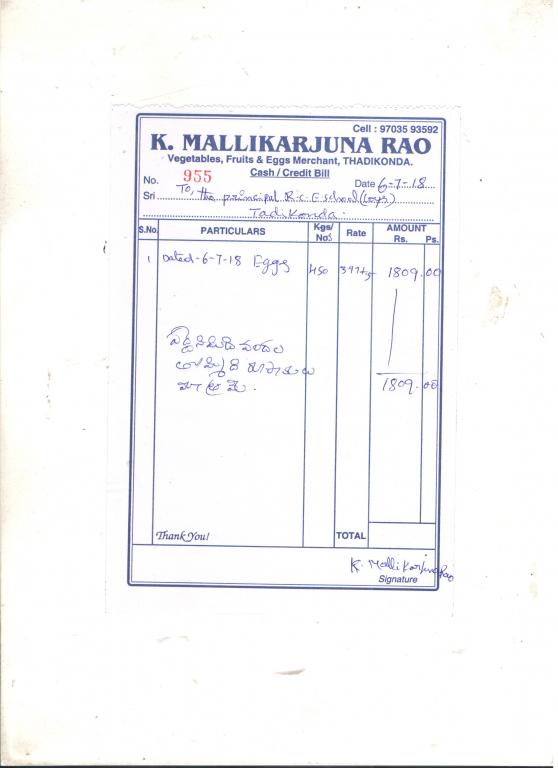 Cell : 97035 93592
K. MALLIKARJUNA RAO
Vegetables, Fruits & Eggs Merchant, THADIKONDA.
Cash / Credit Bill
No. 955 Date 6-7-18
Sri To, the principal R.C.E School (Boys)
Tadikonda.
S.No. PARTICULARS Kgs/ Nos Rate AMOUNT Rs. Ps.
1 Dated-6-7-18 Eggs 450 1809.00
మాత్రమే.
1809.00
Thank You! TOTAL
K. Mallikarjuna Rao
Signature